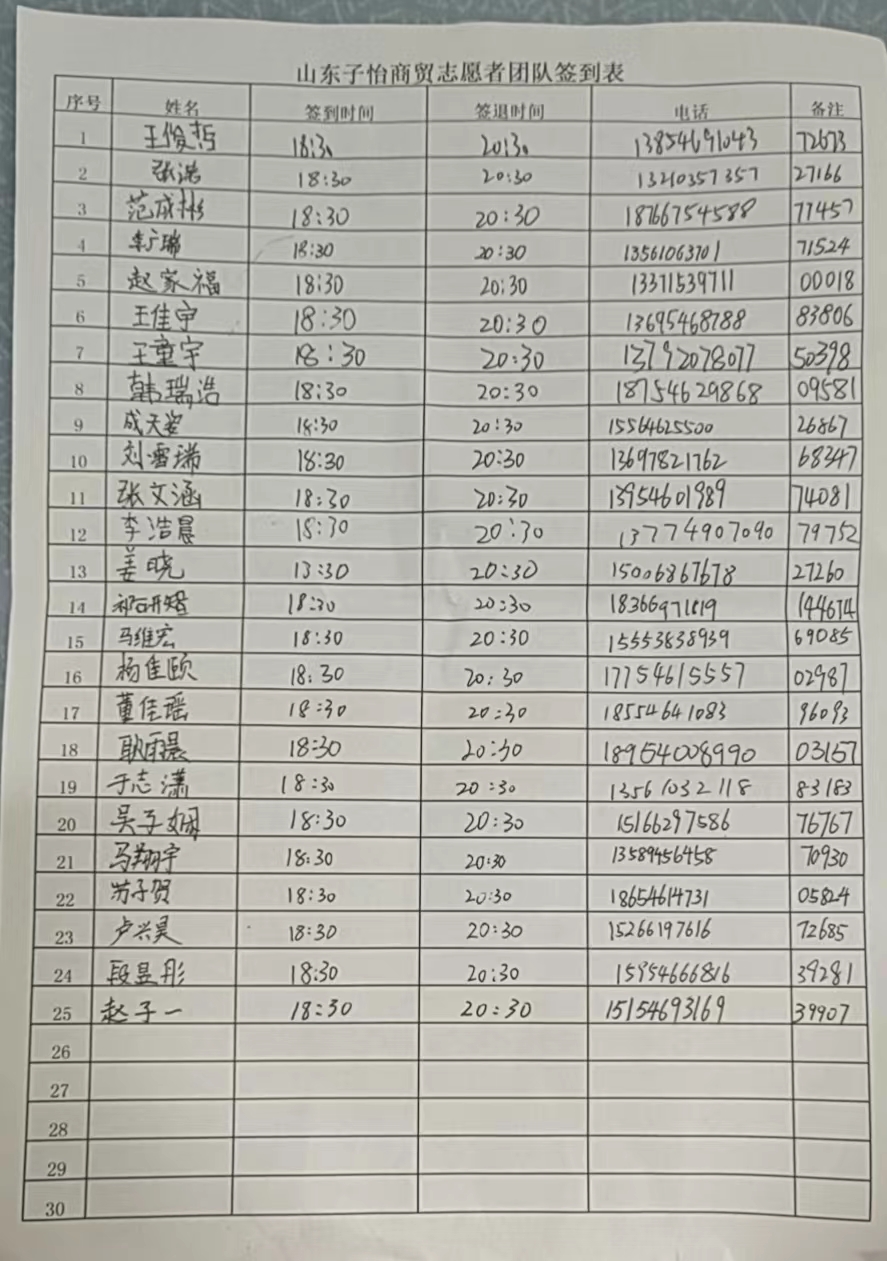 山东子怡商贸志愿者团队签到表
序号 姓名 签到时间 签退时间 电话 备注
1 王俊哲 18:30 20:30 13854691043 72673
2 张浩 18:30 20:30 13210357357 27166
3 范成彬 18:30 20:30 18766754588 77457
4 李广瑞 18:30 20:30 13561063701 71524
5 赵家福 18:30 20:30 13371539711 00018
6 王佳宇 18:30 20:30 13695468788 83806
7 王童宇 18:30 20:30 13792078077 50398
8 韩瑞浩 18:30 20:30 18754629868 09581
9 成天姿 18:30 20:30 15564625500 26867
10 刘雪瑞 18:30 20:30 13697821762 68347
11 张文涵 18:30 20:30 13954601989 74081
12 李浩晨 18:30 20:30 13774907090 79752
13 姜晓 13:30 20:30 15006867678 27260
14 18:30 20:30 18366971819 144674
15 马维宏 18:30 20:30 15553838939 69085
16 杨佳颐 18:30 20:30 17754615557 02987
17 董佳瑶 18:30 20:30 18554641083 96093
18 耿雨晨 18:30 20:30 18954008990 03157
19 于志潇 18:30 20:30 13561032118 83183
20 吴子娴 18:30 20:30 15166297586 76767
21 马翔宇 18:30 20:30 13589456458 70930
22 苏子贺 18:30 20:30 18654614731 05824
23 卢兴昊 18:30 20:30 15266197616 72685
24 段昱彤 18:30 20:30 15954666816 39281
25 赵子一 18:30 20:30 15154693169 39907
26
27
28
29
30